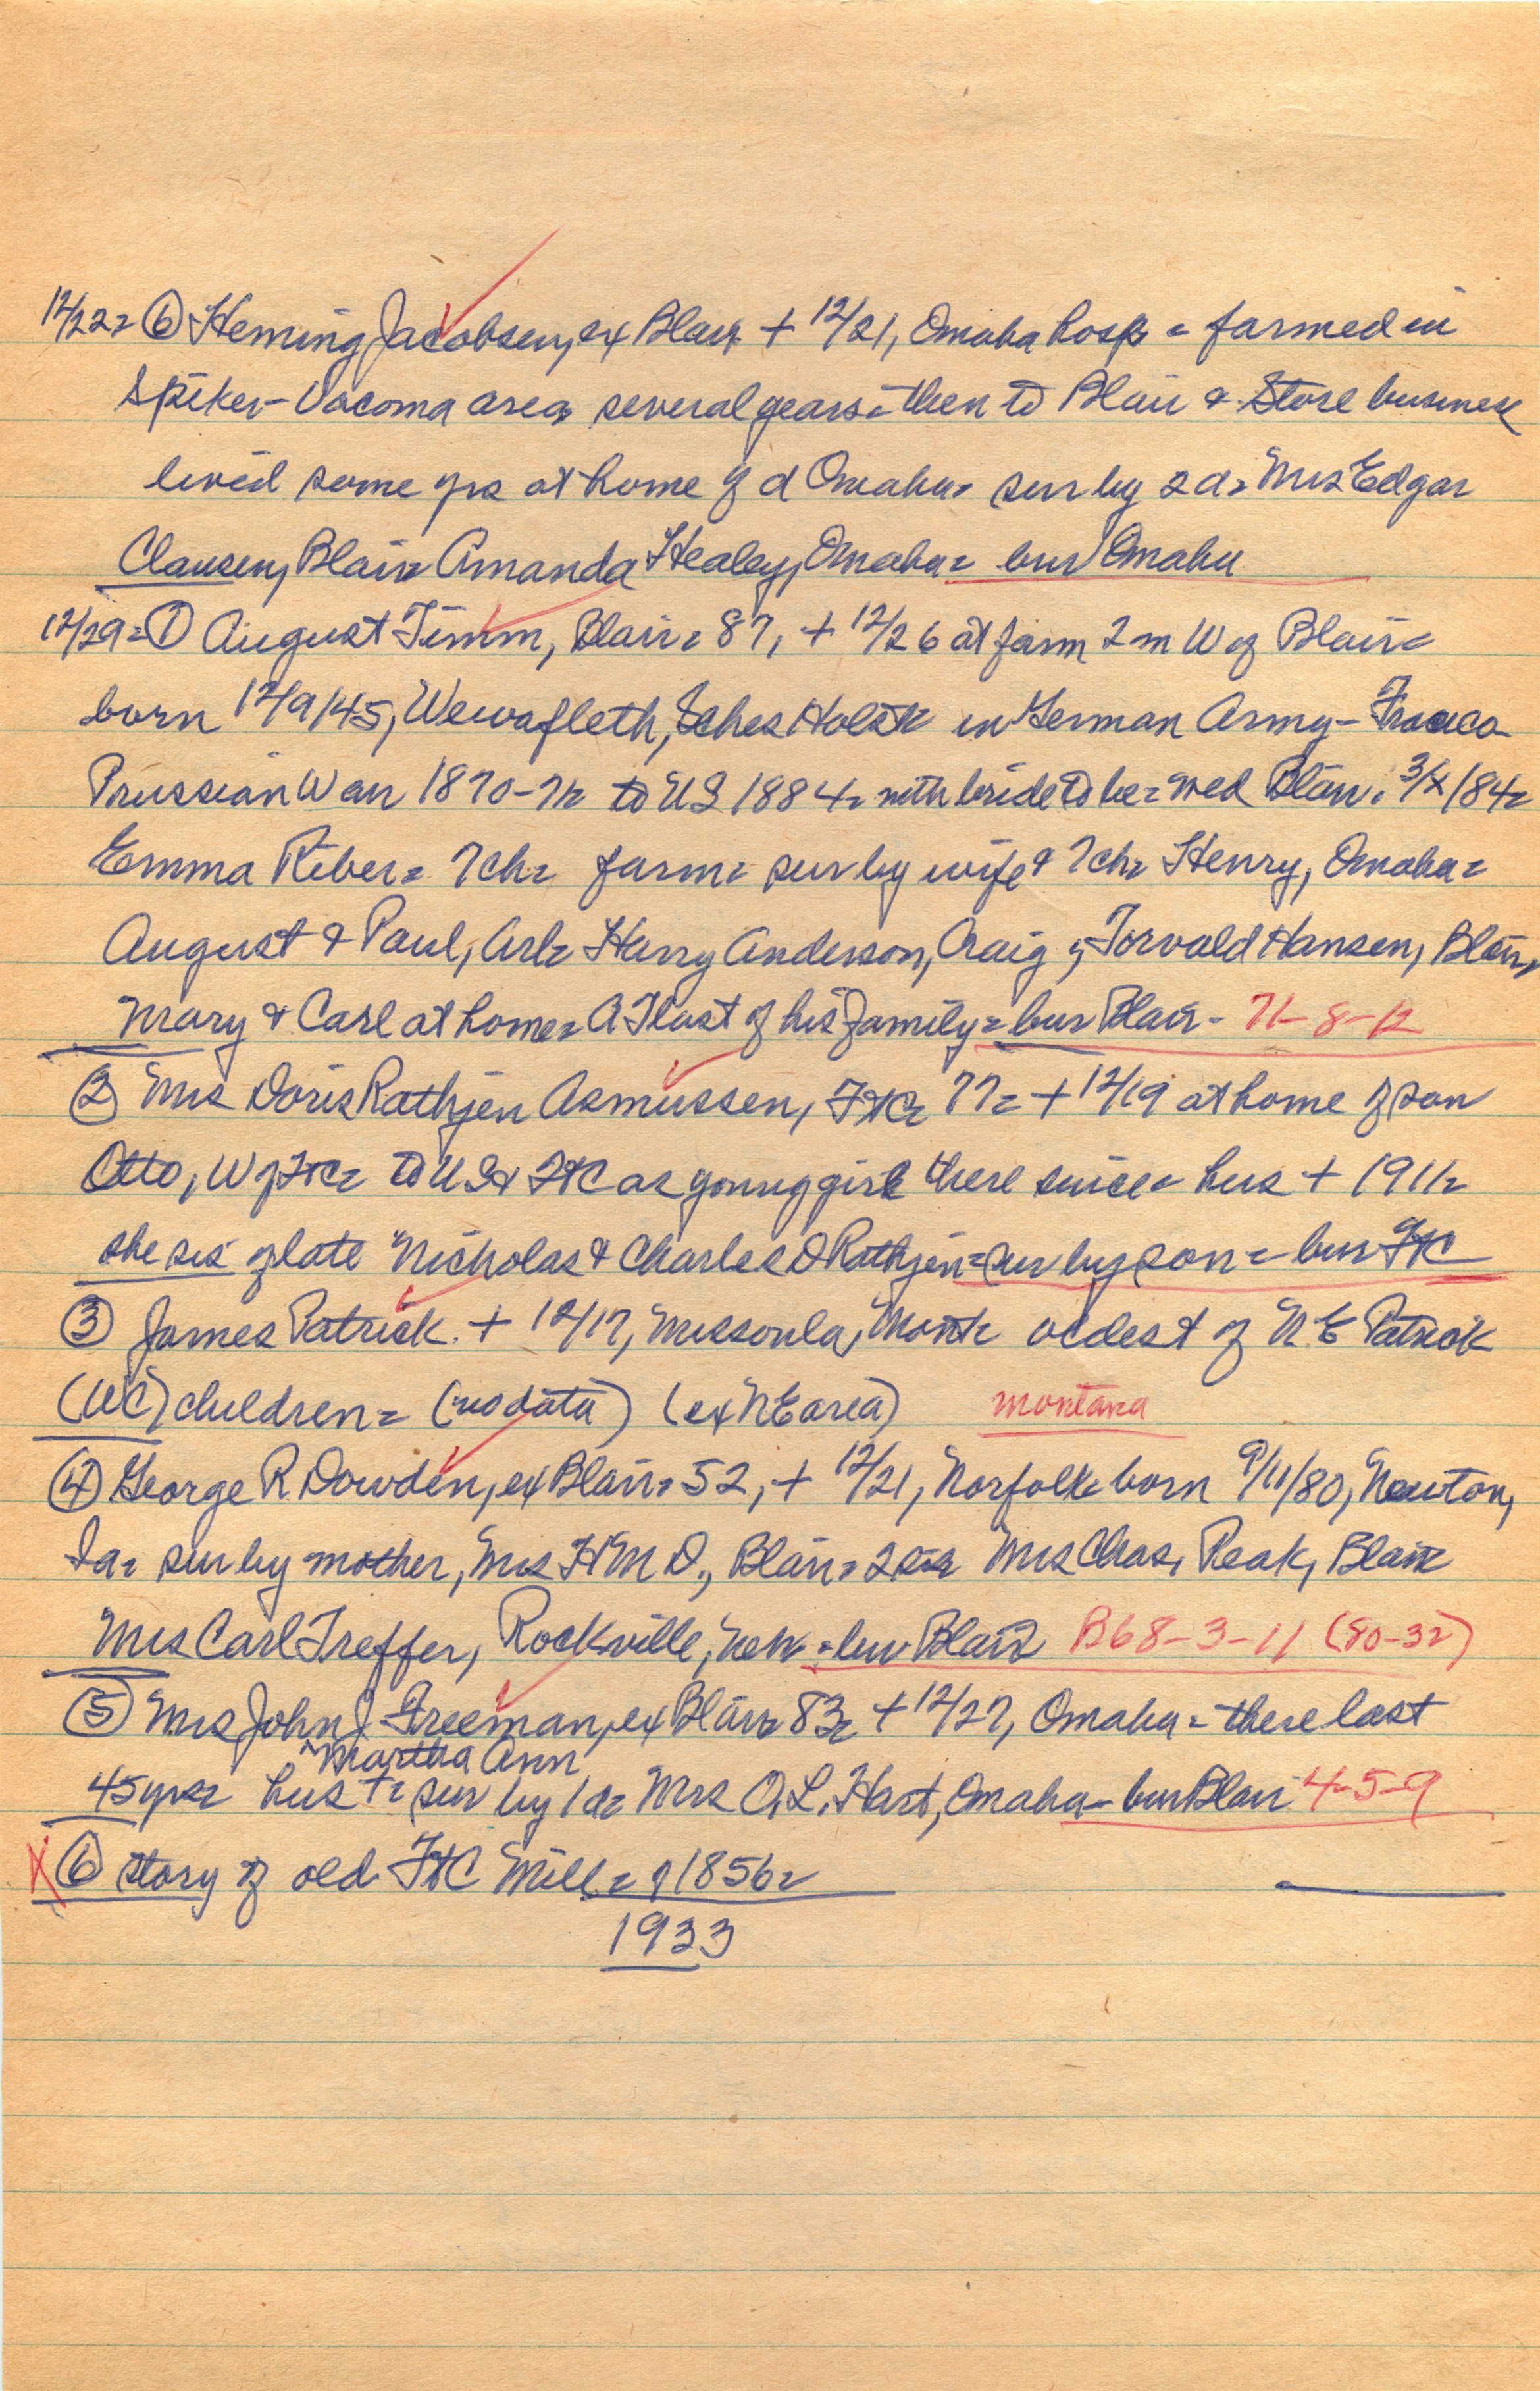 12/22= ⑥ Heming Jacobsen, ex Blair + 12/21, Omaha hosp = farmed in
Spiker-Vacoma area several years = then to Blair & Store business
lived some yrs at home of d Omaha = sur by 2 d = Mrs Edgar
Clausen, Blair = Amanda Healey, Omaha = bur Omaha
12/29= ① August Timm, Blair = 87, + 12/26 at farm 2 m W of Blair =
born 12/9/45, Wewafleth, Schles Holst = in German Army - Franco
Prussian War 1870-71 = to US 1884 = with bride to be = wed Blair, 3/x/84 =
Emma Riber = 7 ch = farm = sur by wife & 7 ch = Henry, Omaha =
August & Paul, Arl = Harry Anderson, Craig, Torvald Hansen, Blair,
Mary & Carl at home = AT last of his family = bur Blair - 71-8-12
② Mrs Doris Rathjen Asmussen, FtC = 77 = + 12/19 at home of son
Otto, W of FtC = to US & FtC as young girl there since = hus + 1911 =
she sis of late Nicholas & Charles D Rathjen = sur by son = bur FtC
③ James Patrick + 12/17, Missoula, Mont = oldest of N E Patrick
(WC) children = (no data) (ex NE area) Montana
④ George R. Dowden, ex Blair = 52, + 12/21, Norfolk = born 9/11/80, Newton,
Ia = sur by mother, Mrs H M D., Blair = 2 sis = Mrs Chas, Peak, Blair =
Mrs Carl Treffer, Rockville, Neb = bur Blair B68-3-11 (80-32)
⑤ Mrs John J. Freeman, ex Blair = 83 = + 12/27, Omaha = there last
Martha Ann
45 yrs = hus + = sur by 1 d = Mrs O. L. Hart, Omaha - bur Blair 4-5-9
X ⑥ story of old FtC Mill = of 1856 =
1933